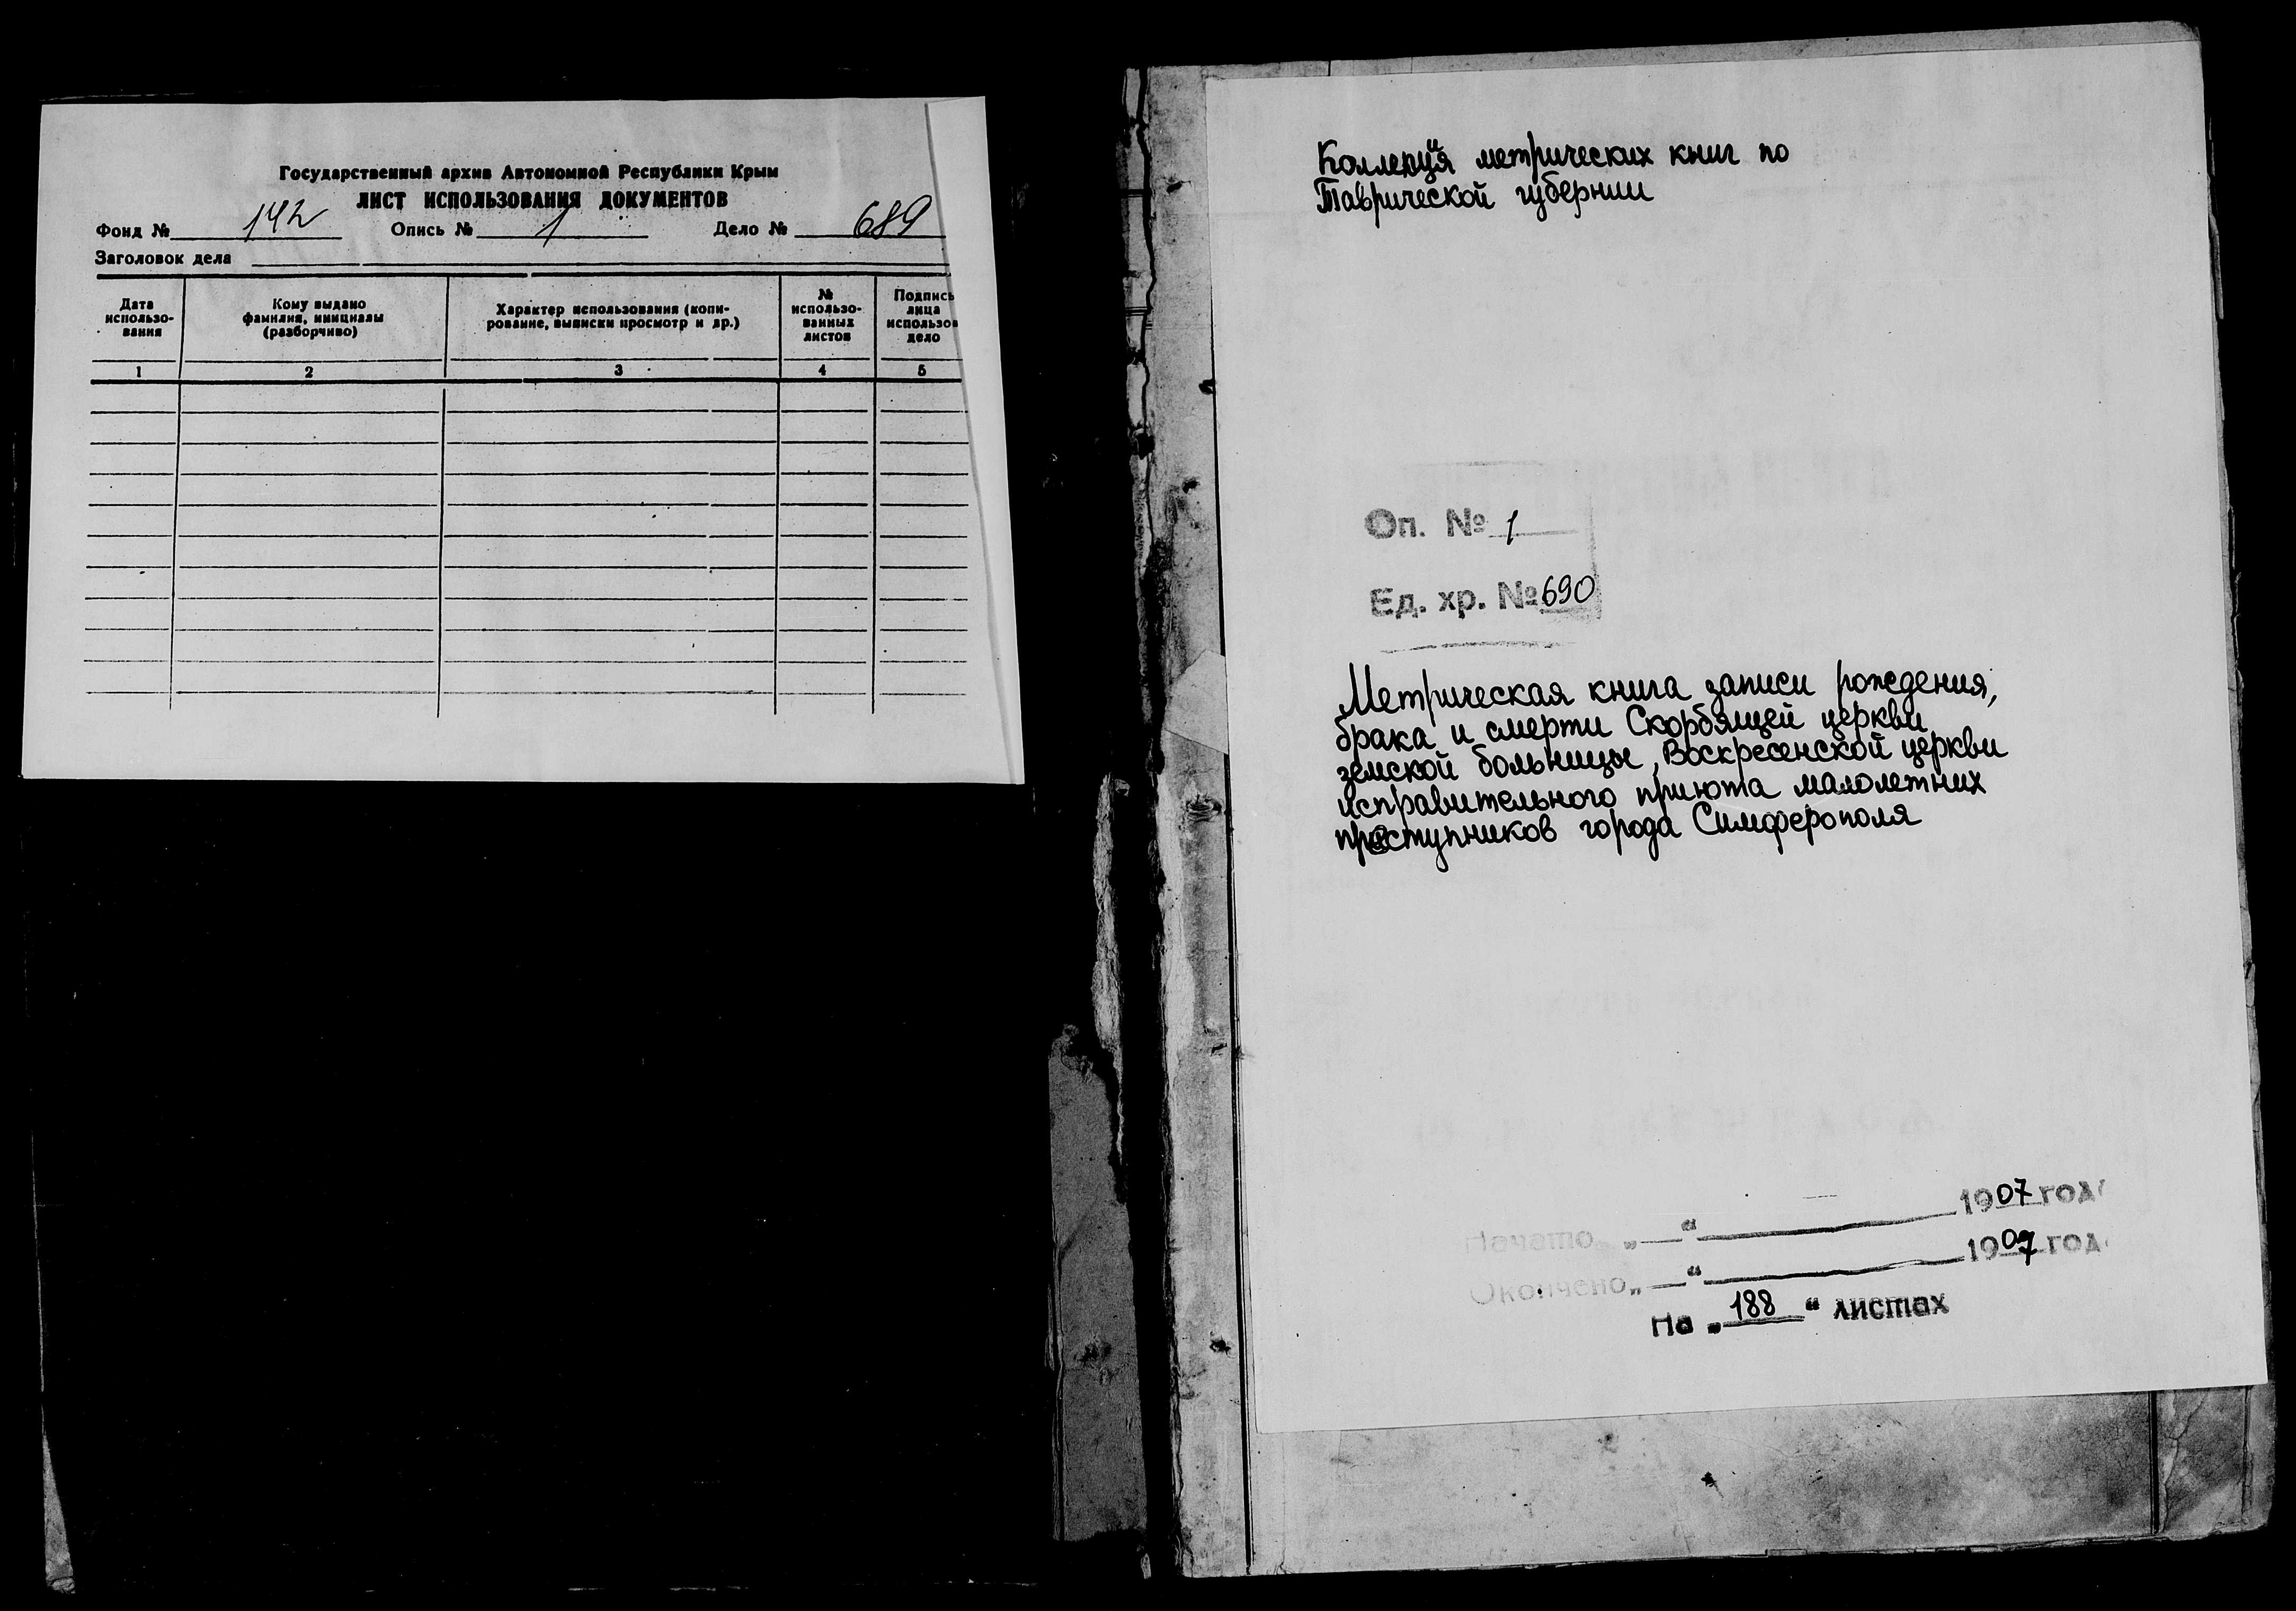 Государственный архив Автономной Республики Крым
ЛИСТ ИСПОЛЬЗОВАНИЯ ДОКУМЕНТОВ
Фонд № 142 Опись № 1 Дело № 689
Заголовок дела
Дата
использо-
вания
Кому выдано
фамилия, инициалы
(разборчиво)
Характер использования (копи-
рование, выписки просмотр и др.)
№
использо-
ванных
листов
Подпись
лица
использов
дело
1 2 3 4 5
Коллекция метрических книг по
Таврической губернии
Оп. № 1
Ед. хр. № 690
Метрическая книга записи рождения,
брака и смерти Скорбящей церкви
земской больницы, Воскресенской церкви
исправительного приюта малолетних
преступников города Симферополя
Начато „ “ 1907 год
Окончено „ “ 1907 год
На „188“ листах